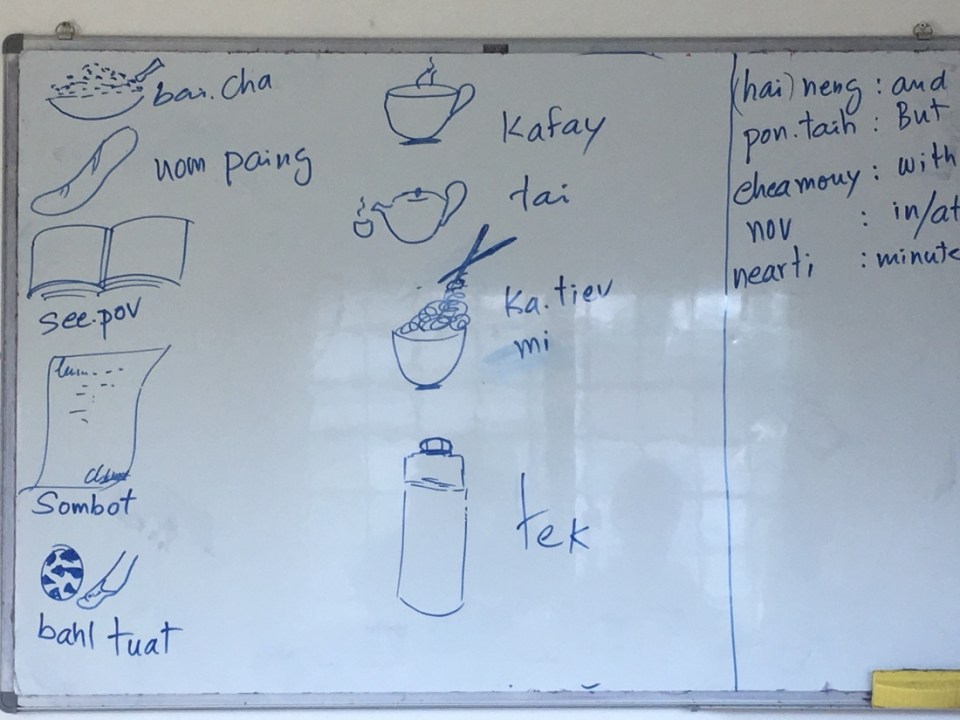 bai.cha
nom paing
see.pov
Sombot
bahl tuat
Kafay
tai
Ka.tiev
mi
tek
(hai) neng : and
pon.taih : But
cheamouy : with
nov : in/at
nearti : minute